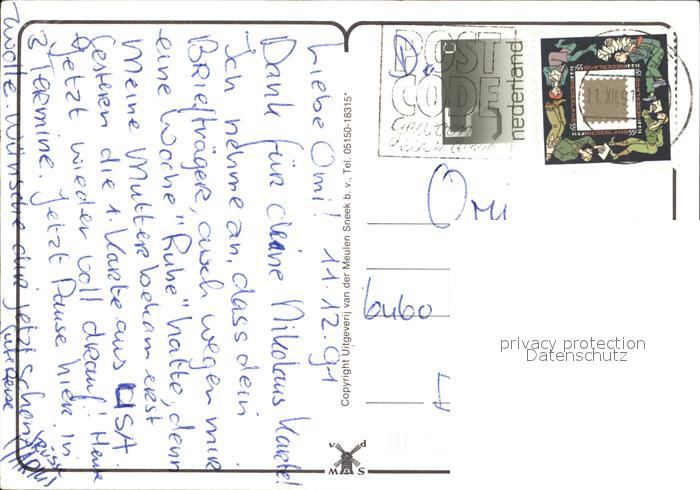 Liebe Omi! 11.12.91
Dank für deine Nikolaus Karte!
Ich nehme an, dass dein
Briefträger, auch wegen mir
eine Woche "Ruhe" hatte, denn
Meine Mutter bekam erst
gestern die 1. Karte aus USA.
Jetzt wieder voll drauf! Heute
3 Termine. Jetzt Pause hier in
Zwolle. Wünsche dir jetzt schon
Copyright Uitgeverij van der Meulen Sneek b.v., Tel. 05150-18315*
POST
CODE
nederland
NEDERLAND
55
11.XII.9
Omi
6460
privacy protection
Datenschutz
v d
MAS